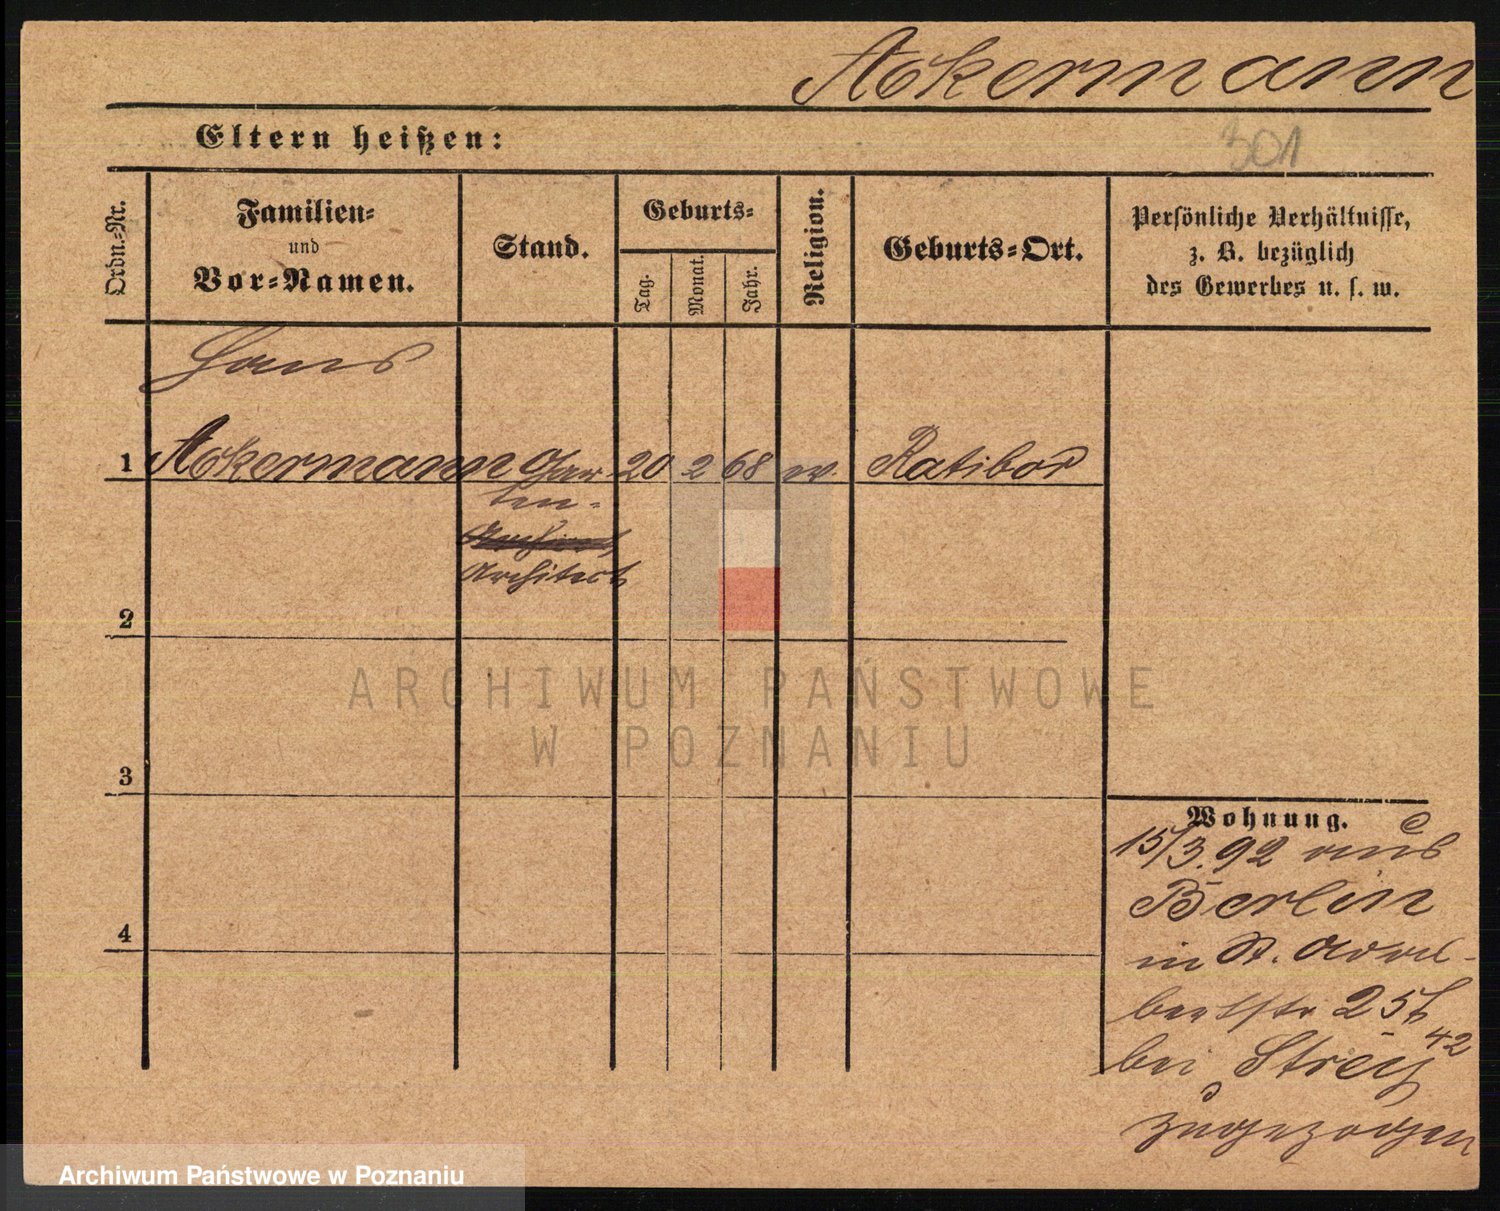 Ackermann
301
Eltern heißen:
Ordn.-Nr.
Familien-
und
Vor-Namen.
Stand.
Geburts-
Tag.
Monat.
Jahr.
Religion.
Geburts-Ort.
Persönliche Verhältnisse,
z. B. bezüglich
des Gewerbes u. s. w.
Hans
1 Ackermann Gar 20 2 68 ev. Ratibor
ten-
Architect
2
3
4
Wohnung.
15/3.92 aus
Berlin
in St. Adal-
bertstr 25
42
bei Strey
zugezogen
ARCHIWUM PAŃSTWOWE
W POZNANIU
Archiwum Państwowe w Poznaniu